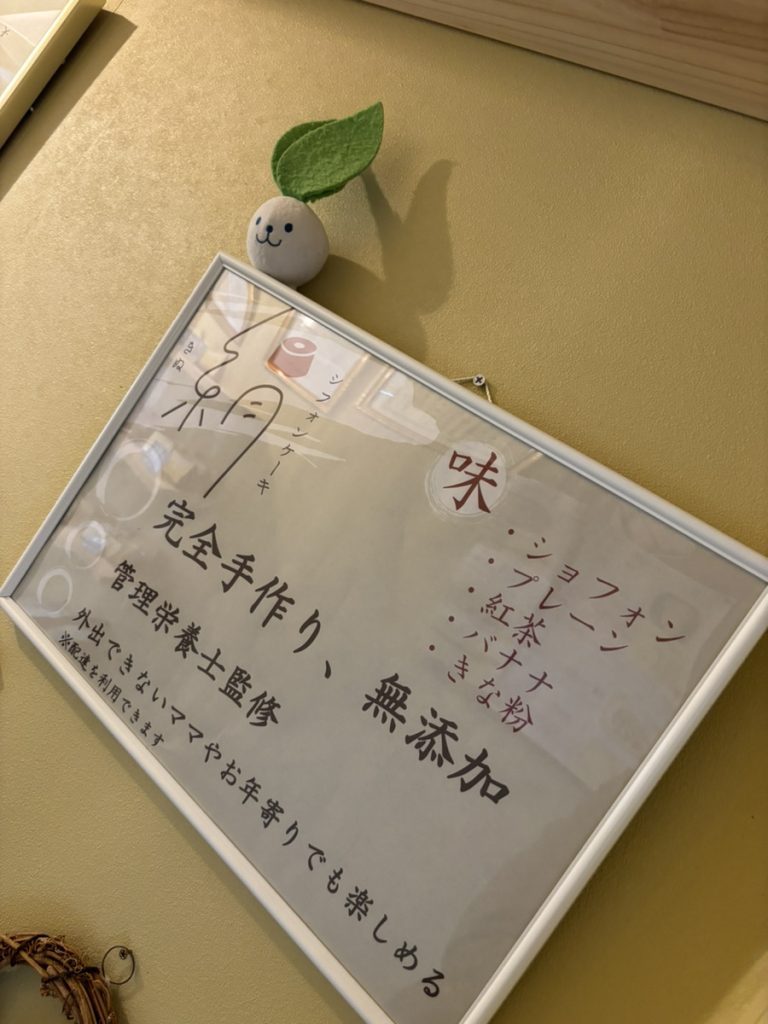 絹
シフォンケーキ
味
・ショフォン
・プレーン
・紅茶
・バナナ
・きな粉
完全手作り、無添加
管理栄養士監修
外出できないママやお年寄りでも楽しめる
※配達を利用できます